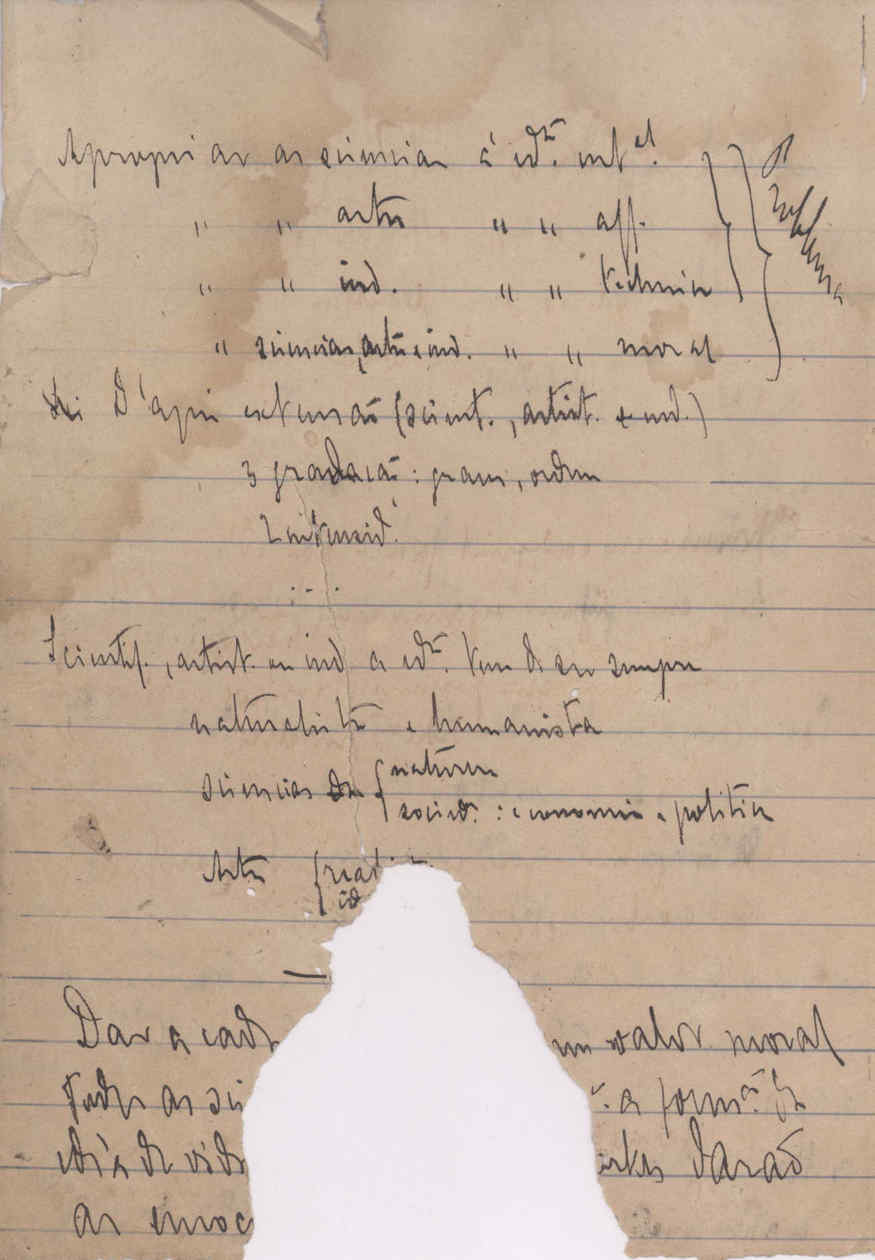 Apropriar as sciencias á edm. intel.
" " artes " " aff.
" " ind. " " technica
" sciencias, artes e ind. " " moral
Problema
D'apri extensão (scient., artist. e ind.)
3 gradação: graus, ordem
2 intensid.
Scientif., artist. ou ind a edm. tem de ser sempre
naturalista e humanista
sciencias da { natureza
socied. : economia e politica
Artes {
id
Dar a cada um valor moral
Todas as sci a form.
idéa de vida artes darão
as emoc